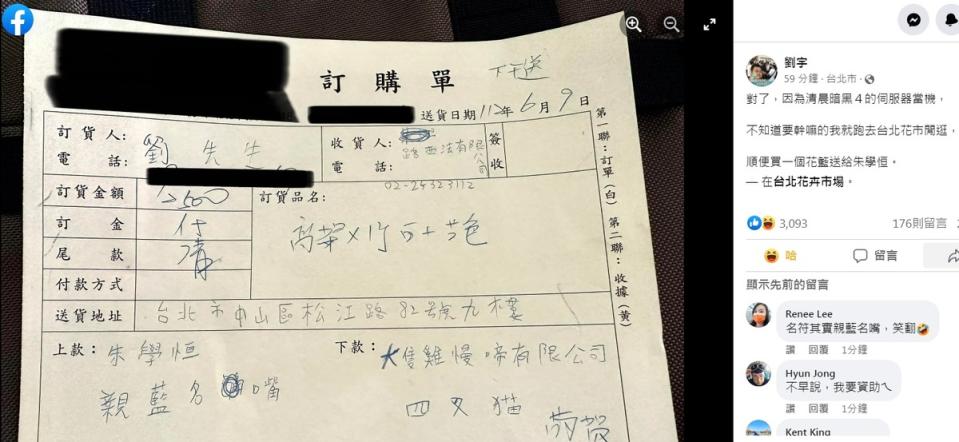 訂購單
下午送
送貨日期112年6月9日
訂貨人:劉先生
電話:
收貨人:路西法有限公司
電話:
02-24323112
簽收
訂貨金額
訂貨品名:
訂金 付
尾款 清
付款方式
送貨地址 台北市中山區松江路82號九樓
上款:朱學恒
親藍名嘴
下款:大隻雞慢啼有限公司
四叉貓
敬賀
第一聯:訂單(白) 第二聯:收據(黃)
劉宇
59 分鐘·台北市·
對了,因為清晨暗黑4的伺服器當機,
不知道要幹嘛的我就跑去台北花市閒逛,
順便買一個花籃送給朱學恒。
— 在台北花卉市場。
3,093
176則留言
哈
留言
顯示先前的留言
Renee Lee
名符其實親藍名嘴,笑翻🤣
讚 回覆 1分鐘
Hyun Jong
不早說,我要資助ㄟ
讚 回覆 1分鐘
Kent King